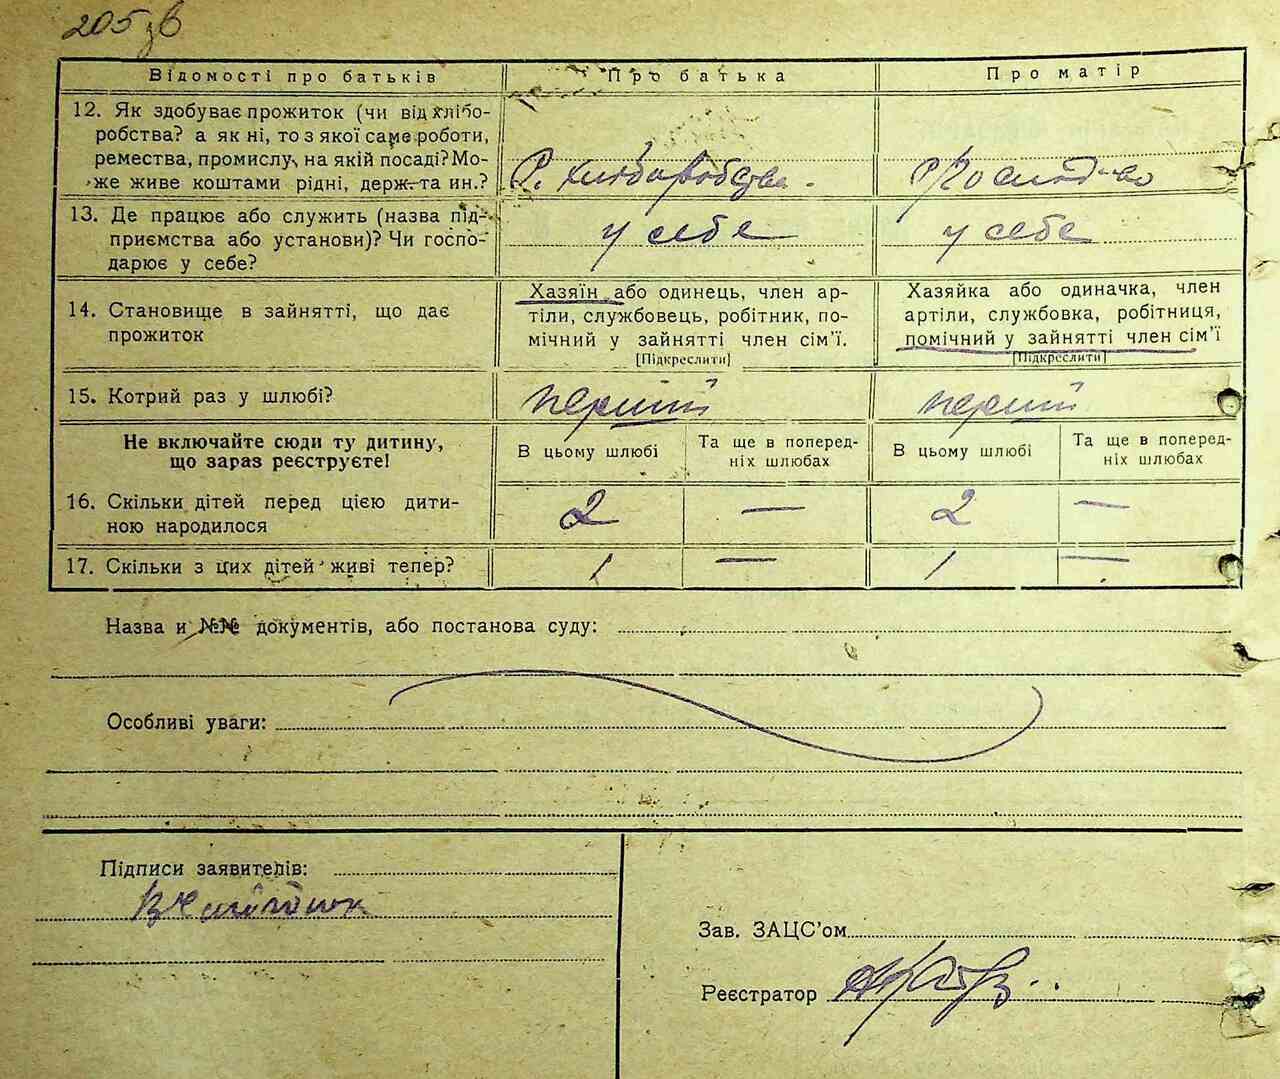 205 зв
Відомості про батьків
Про батька
Про матір
12. Як здобуває прожиток (чи від хлібо-
робства? а як ні, то з якої саме роботи,
ремества, промислу, на якій посаді? Мо-
же живе коштами рідні, держ. та ин.?
Р. хліборобства.
13. Де працює або служить (назва під-
приємства або установи)? Чи госпо-
дарює у себе?
у себе
у себе
14. Становище в зайнятті, що дає
прожиток
Хазяїн або одинець, член ар-
тіли, службовець, робітник, по-
мічний у зайнятті член сім'ї.
[Підкреслити]
Хазяйка або одиначка, член
артіли, службовка, робітниця,
помічний у зайнятті член сім'ї
[Підкреслити]
15. Котрий раз у шлюбі?
перший
перший
Не включайте сюди ту дитину,
що зараз реєструєте!
В цьому шлюбі
Та ще в поперед-
ніх шлюбах
В цьому шлюбі
Та ще в поперед-
ніх шлюбах
16. Скільки дітей перед цією дити-
ною народилося
2 — 2 —
17. Скільки з цих дітей живі тепер?
1 — 1 —
Назва и №№ документів, або постанова суду:
Особливі уваги:
Підписи заявителів:
Зав. ЗАЦС'ом
Реєстратор